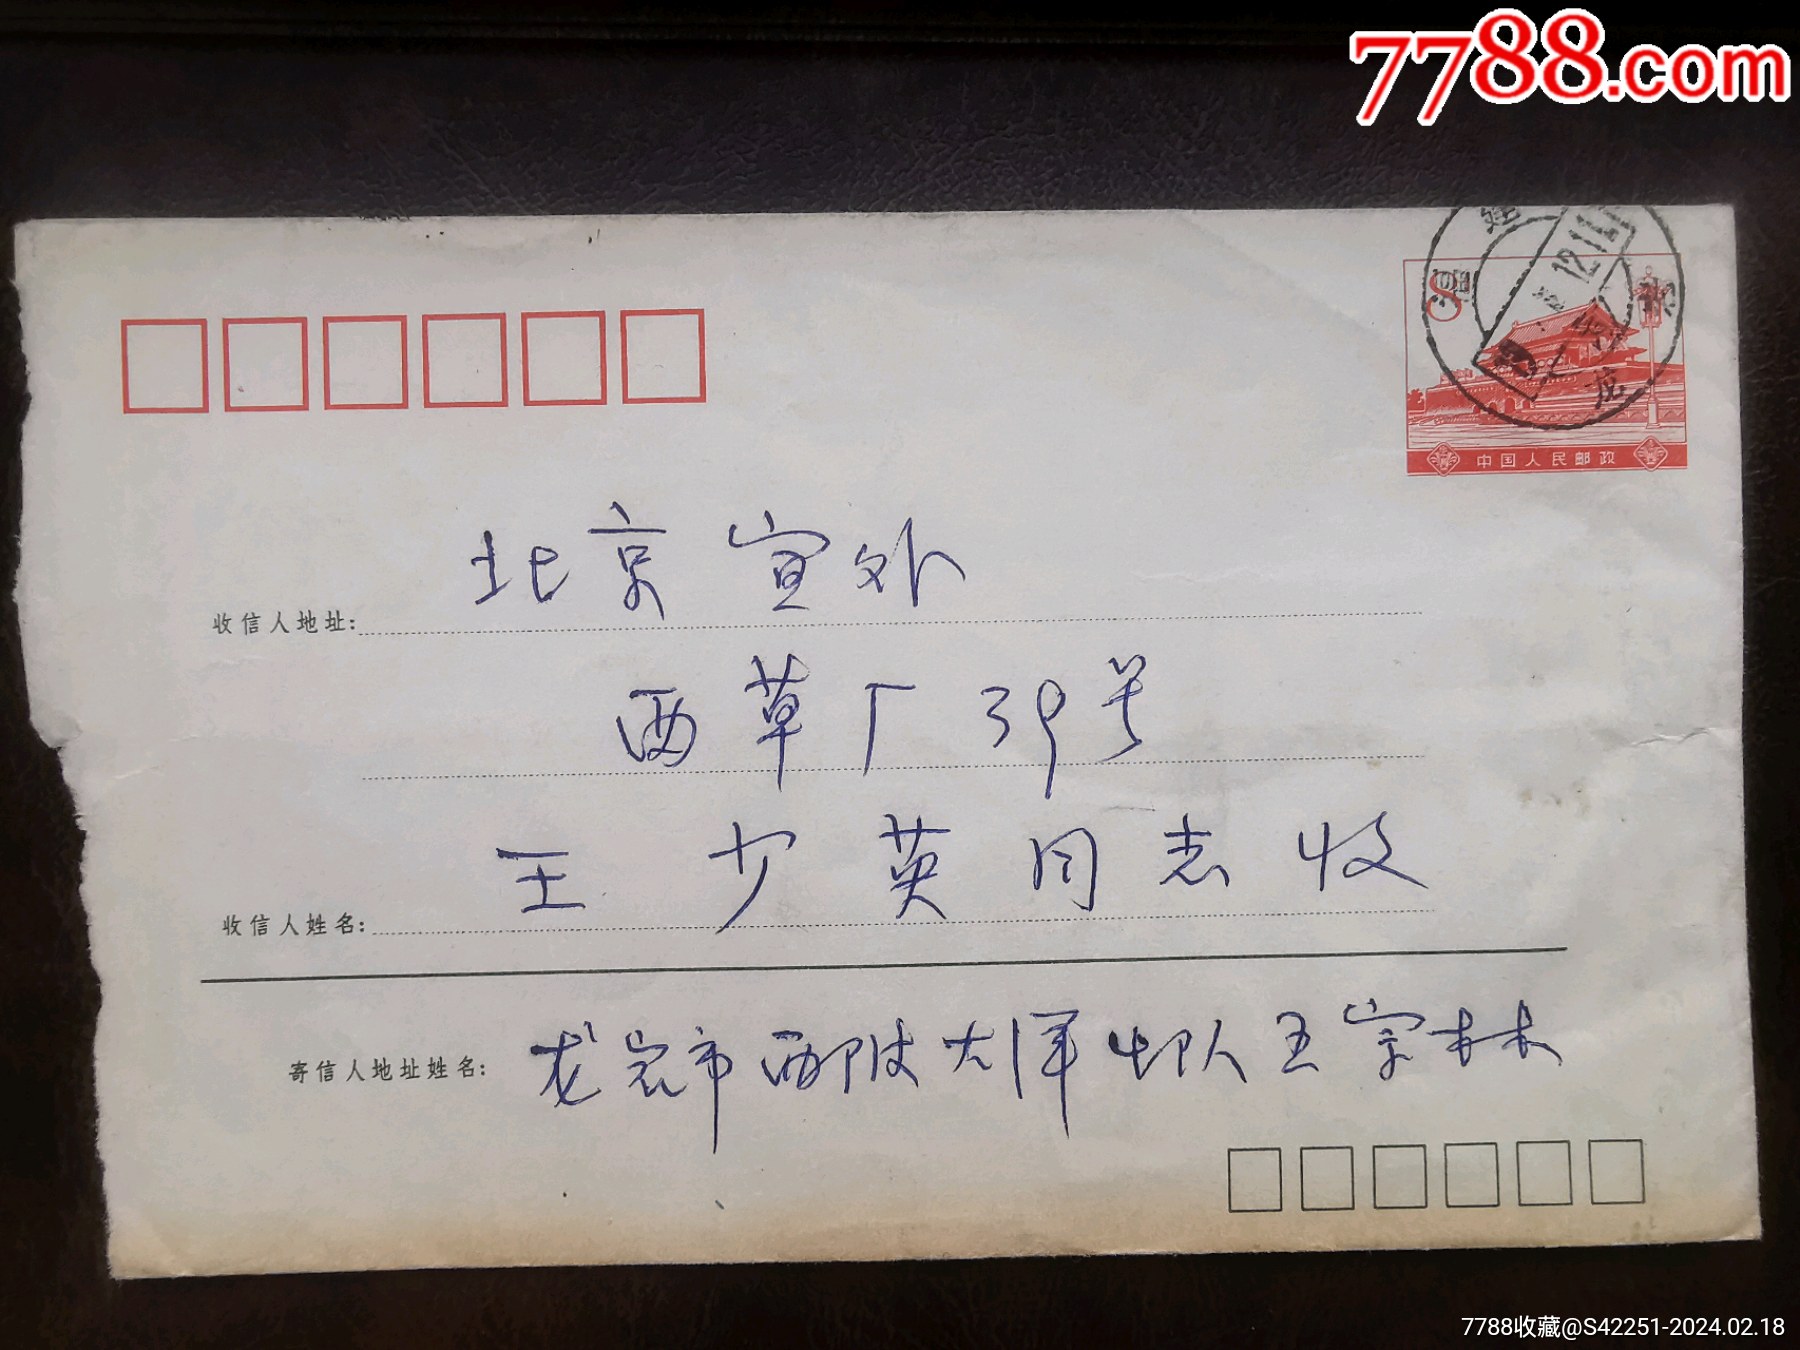 7788.com
建
12.14
8
龙
中国人民邮政
收信人地址:
北京宣外
西草厂39号
收信人姓名:
王少英同志收
寄信人地址姓名:
龙岩市西陂大洋 王宗林
7788收藏@S42251-2024.02.18